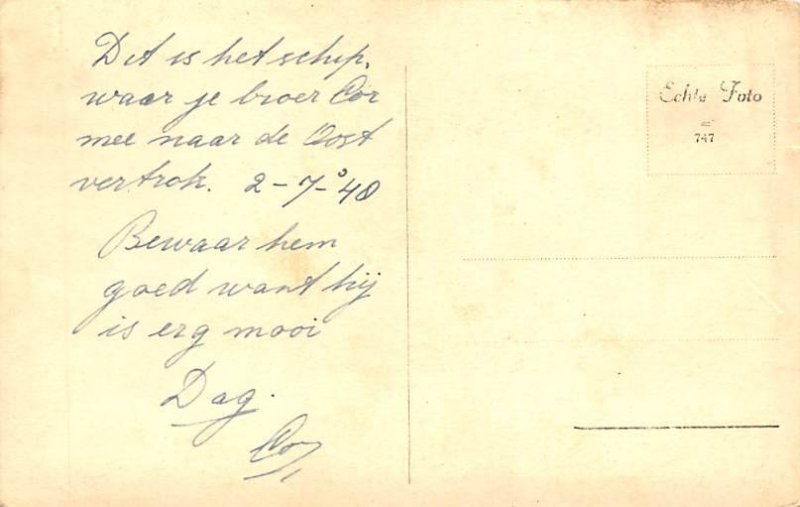 Dit is het schip,
waar je broer Cor
mee naar de Oost
vertrok. 2-7-'48
Bewaar hem
goed want hij
is erg mooi
Dag.
Cor
Echte Foto
747